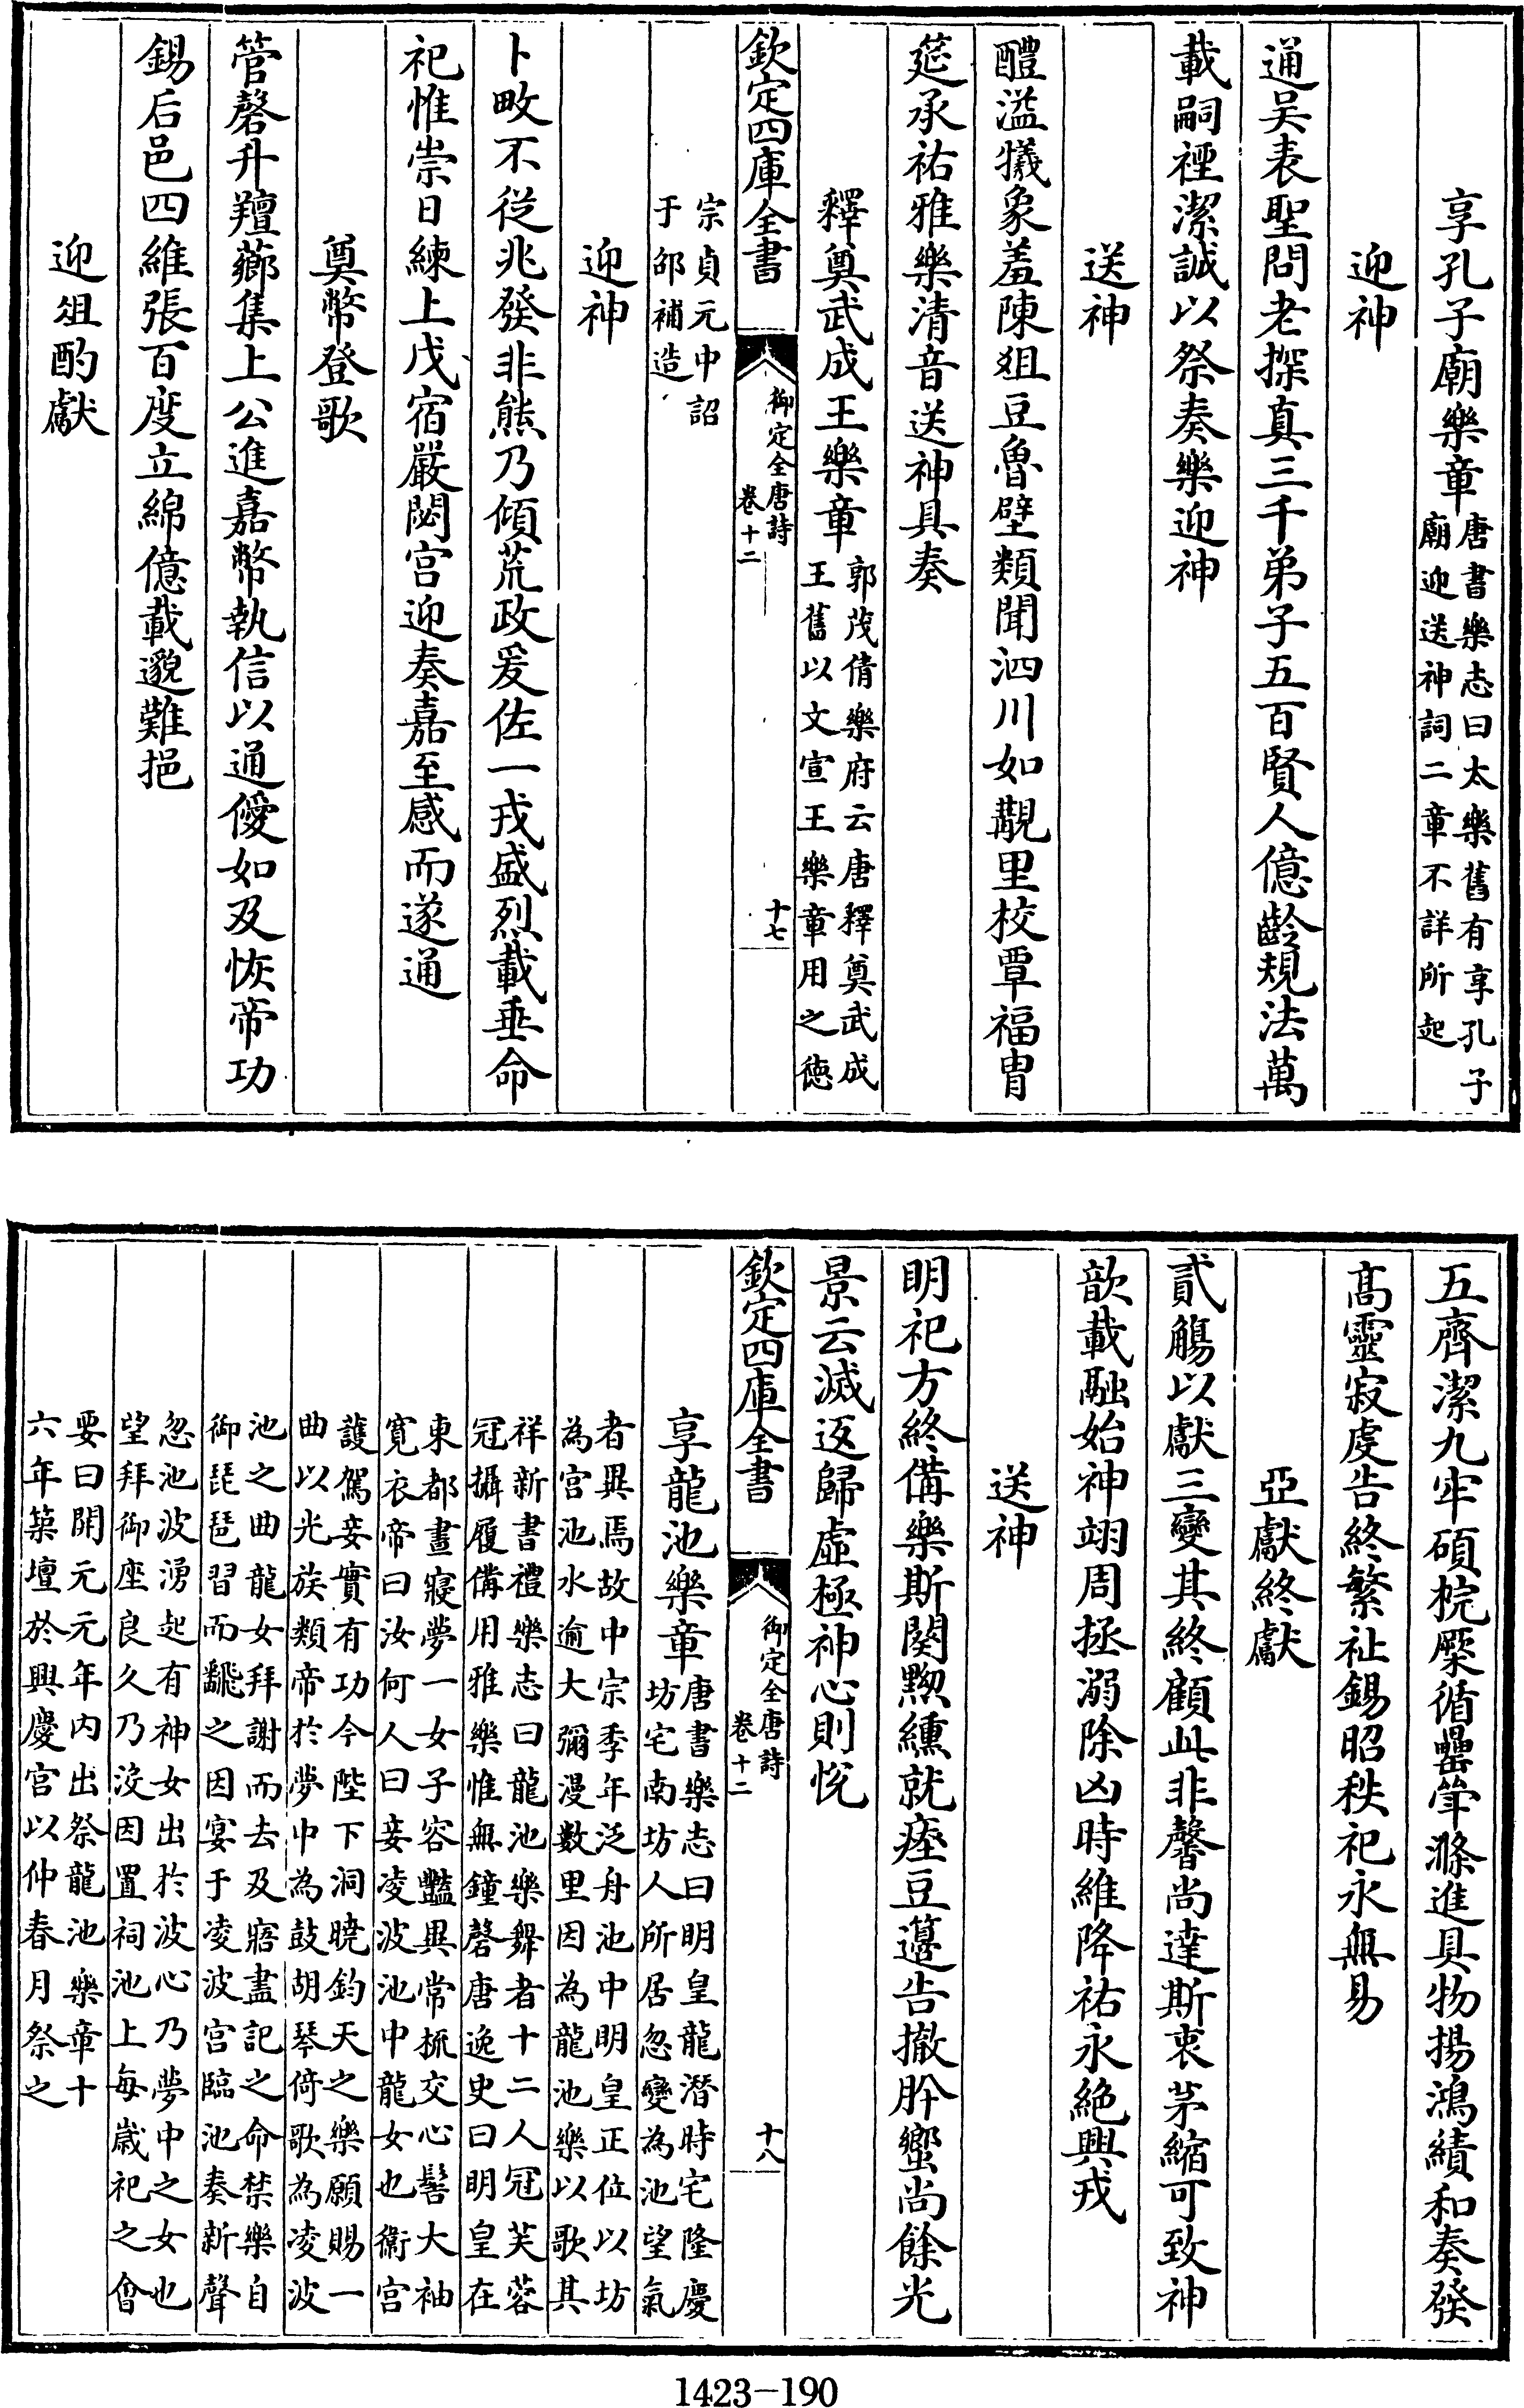 享孔子廟樂章唐書樂志曰太樂舊有享孔子
廟迎送神詞二章不詳所起
迎神
通吴表聖問老探真三千弟子五百賢人億齡規法萬
載嗣禋潔誠以祭奏樂迎神
送神
醴溢犧象羞陳俎豆魯壁類聞泗川如覯里校覃福胄
筵承祐雅樂清音送神具奏
釋奠武成王樂章郭茂倩樂府云唐釋奠武成
王舊以文宣王樂章用之德
欽定四庫全書
御定全唐詩
卷十二
十七
宗貞元中詔
于邵補造
迎神
卜畋不從兆發非熊乃傾荒政爰佐一戎盛烈載垂命
祀惟崇日練上戊宿嚴閟宫迎奏嘉至感而遂通
奠幣登歌
管磬升羶薌集上公進嘉幣執信以通僾如及恢帝功
錫后邑四維張百度立綿億載邈難挹
迎俎酌獻
五齊潔九牢碩梡橜循罍斚滌進具物揚鴻績和奏發
高靈寂虔告終繁祉錫昭秩祀永無易
亞獻終獻
貳觴以獻三變其終顧此非馨尚達斯衷茅縮可致神
歆載融始神翊周拯溺除凶時維降祐永絶興戎
送神
明祀方終備樂斯闋黝纁就瘞豆籩告撤肸蠁尚餘光
景云滅返歸虛極神心則悅
欽定四庫全書
御定全唐詩
卷十二
十八
享龍池樂章唐書樂志曰明皇龍潛時宅隆慶
坊宅南坊人所居忽變為池望氣
者異焉故中宗季年泛舟池中明皇正位以坊
為宫池水逾大彌漫數里因為龍池樂以歌其
祥新書禮樂志曰龍池樂舞者十二人冠芙蓉
冠攝履備用雅樂惟無鐘磬唐逸史曰明皇在
東都晝寢夢一女子容豔異常梳交心髻大袖
寛衣帝曰汝何人曰妾凌波池中龍女也衛宫
護駕妾實有功今陛下洞曉鈞天之樂願賜一
曲以光族類帝於夢中為鼓胡琴倚歌為凌波
池之曲龍女拜謝而去及寤盡記之命禁樂自
御琵琶習而飜之因宴于凌波宫臨池奏新聲
忽池波湧起有神女出於波心乃夢中之女也
望拜御座良久乃沒因置祠池上每歲祀之會
要曰開元元年内出祭龍池樂章十
六年築壇於興慶宫以仲春月祭之
1423-190